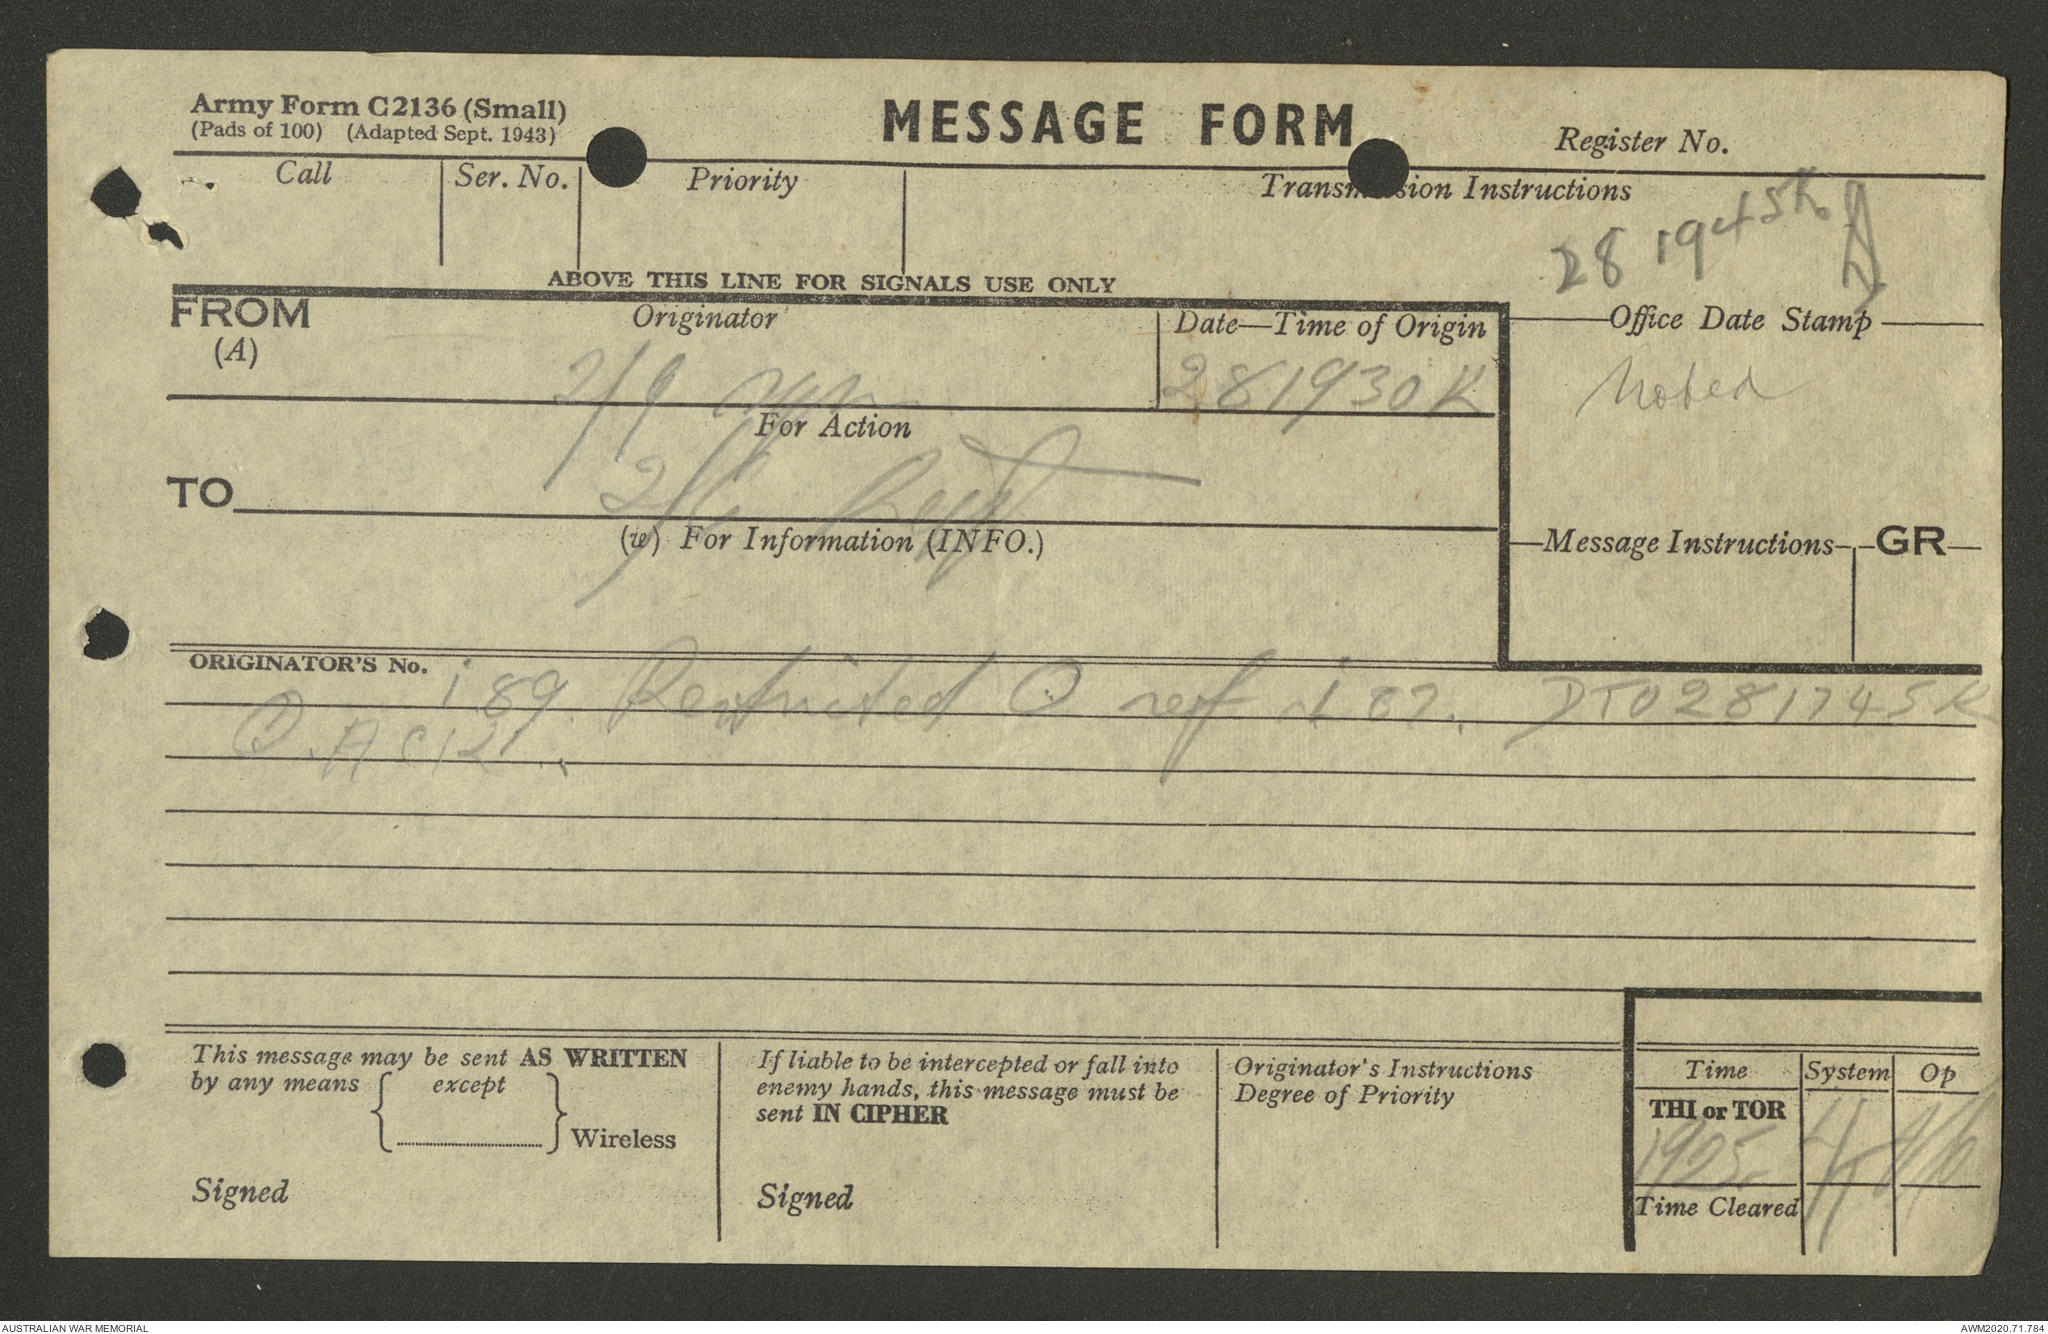 Army Form C2136 (Small)
(Pads of 100) (Adapted Sept. 1943)
MESSAGE FORM
Register No.
Call
Ser. No.
Priority
Transmission Instructions
28 1945K
ABOVE THIS LINE FOR SIGNALS USE ONLY
FROM
(A)
Originator
Date—Time of Origin
Office Date Stamp
2/9
281930K
Noted
For Action
TO
2/6 Regt
(w) For Information (INFO.)
Message Instructions
GR
ORIGINATOR'S No.
i 89. Restricted O ref i 87. DTO281745K
O. AC12.
This message may be sent AS WRITTEN
by any means { except
} Wireless
Signed
If liable to be intercepted or fall into
enemy hands, this message must be
sent IN CIPHER
Signed
Originator's Instructions
Degree of Priority
Time
System
Op
THI or TOR
Time Cleared
AUSTRALIAN WAR MEMORIAL
AWM2020.71.784